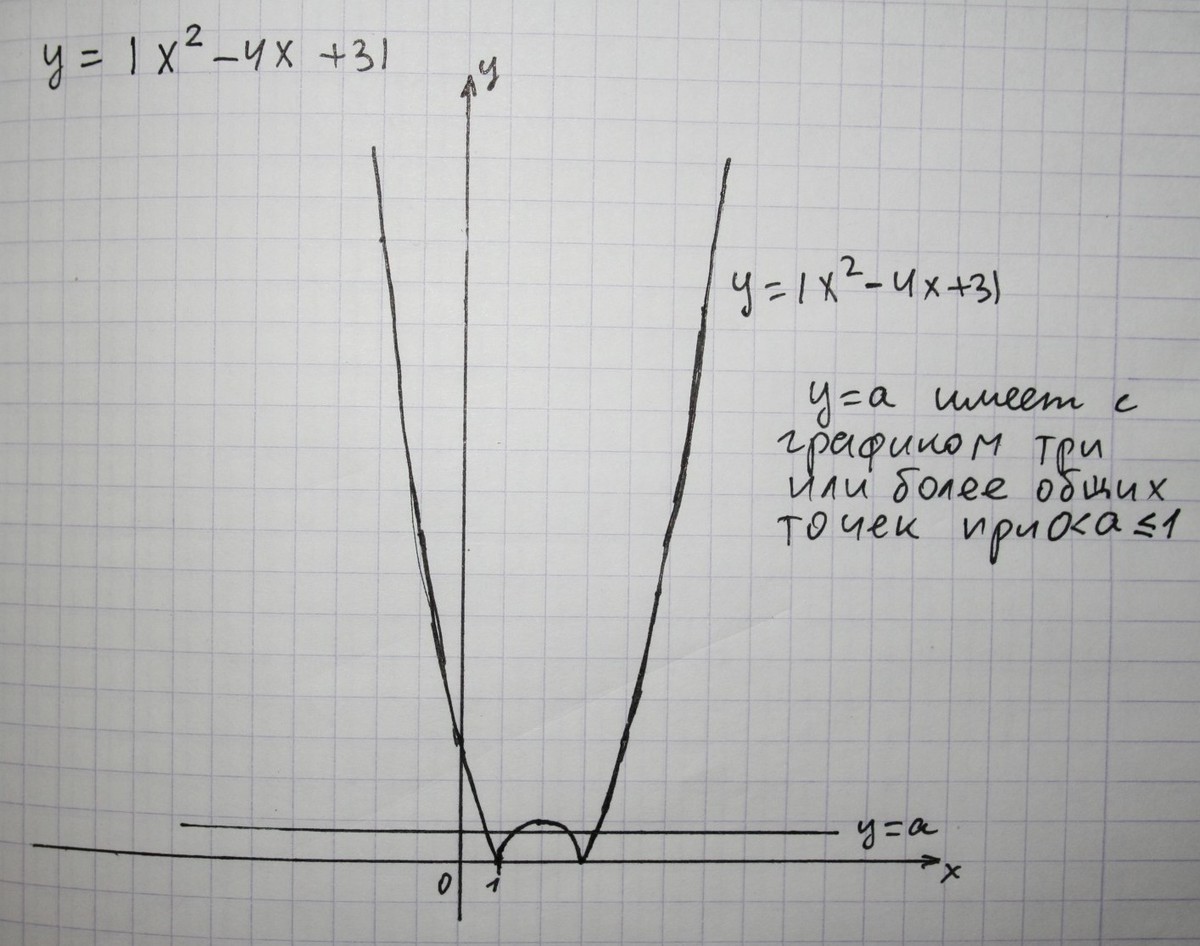 y = |x² - 4x + 3|
y
y = |x² - 4x + 3|
y = a имеет с
графиком три
или более общих
точек при 0 < a ≤ 1
y = a
0 1 x